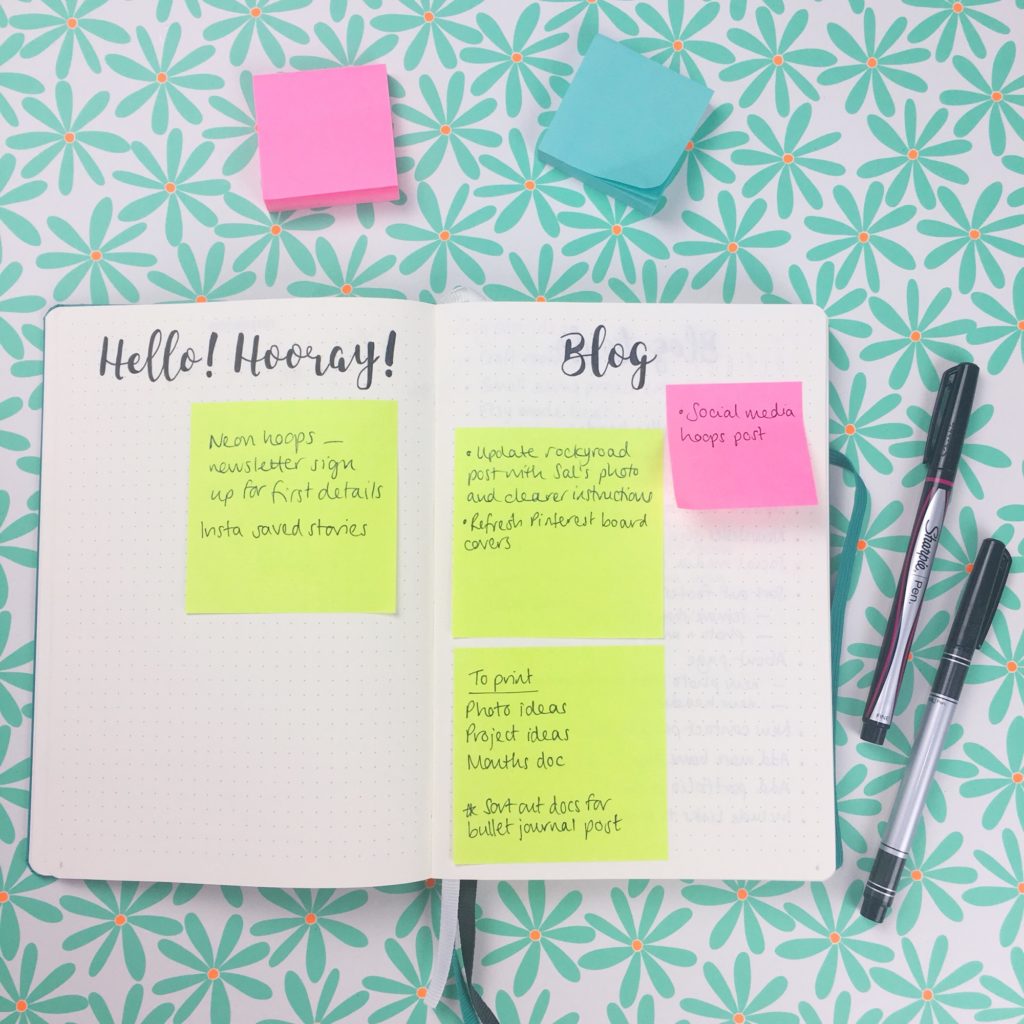 Hello! Hooray!
Neon hoops –
newsletter sign
up for first details
Insta saved stories
Blog
• Social media
hoops post
• Update rockyroad
post with Sal's photo
and clearer instructions
• Refresh Pinterest board
covers
To print
Photo ideas
Project ideas
Months doc
* Sort out docs for
bullet journal post
Sharpie. Pen.
FINE